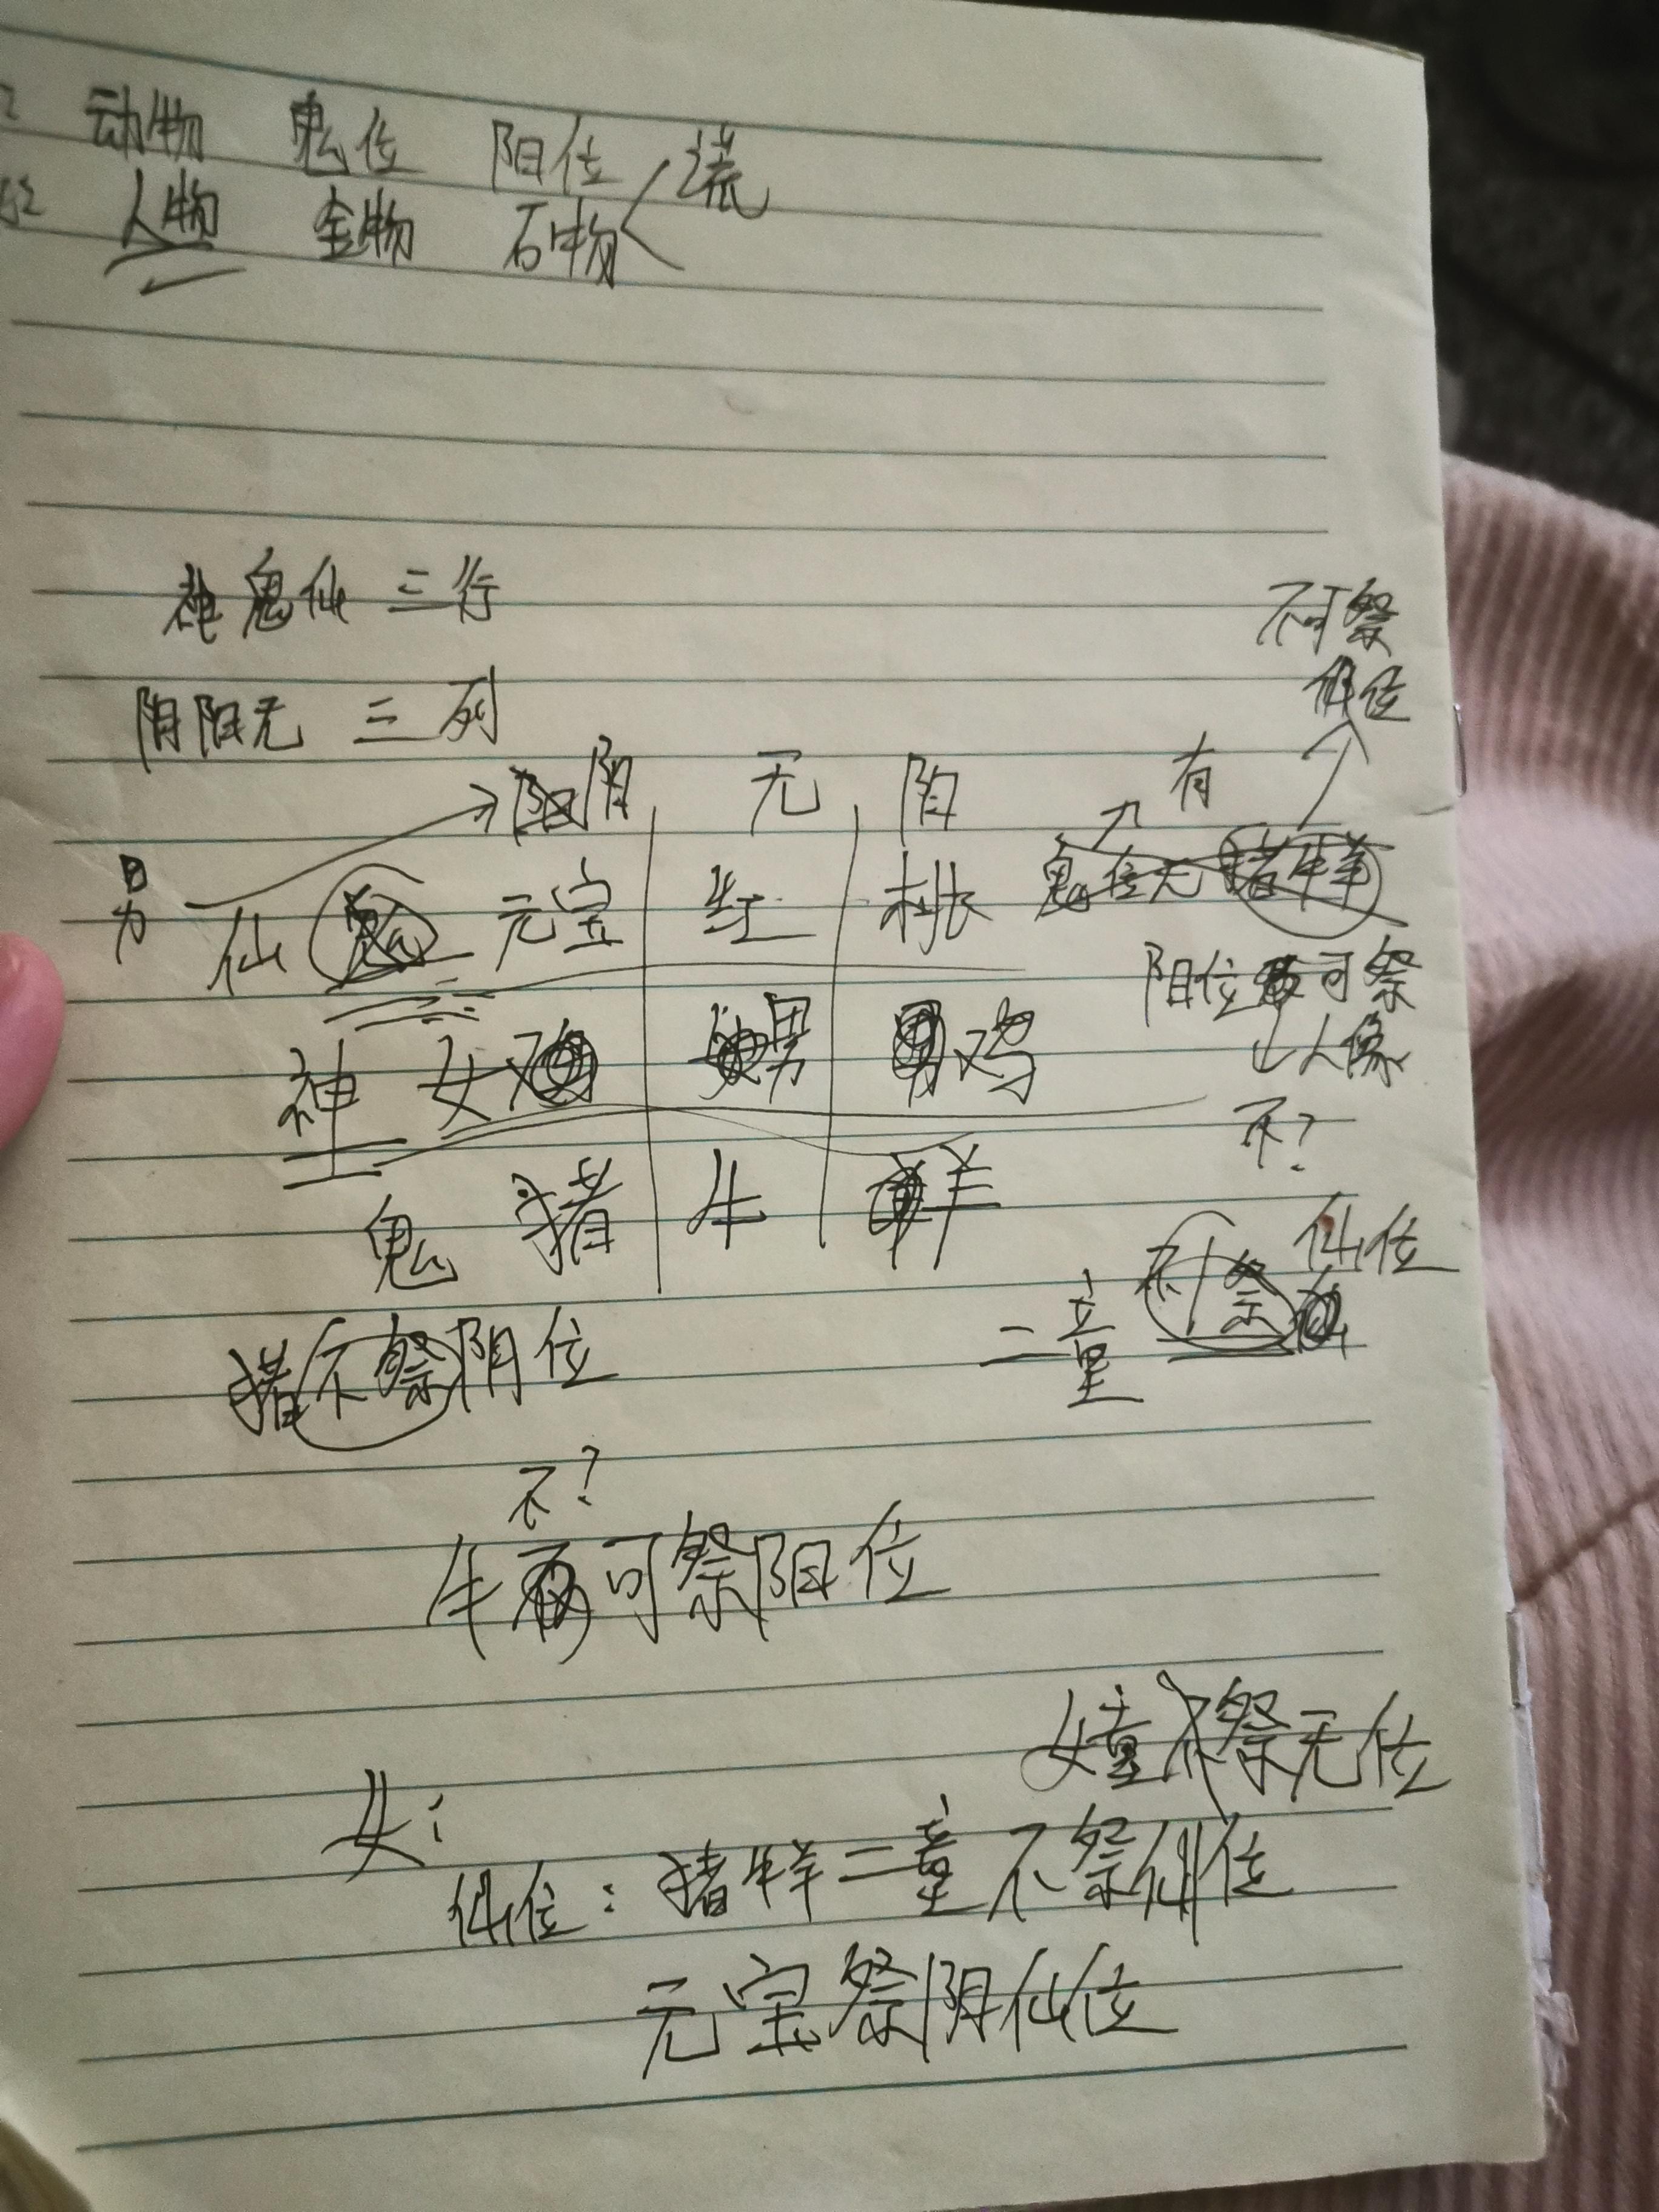 动物 鬼位 阳位 谎
人物 金物 石物
神鬼仙 三行
阴阳无 三列
不可祭
仙位
阴 无 阳
有
男
仙 鬼 元宝 红 桃 鬼位无猪牛羊
阳位 可祭
人像
不?
神 女 男 鸡
鬼 猪 牛 羊
仙位
二童 不祭
猪不祭阴位
不?
牛 可祭阳位
女童不祭无位
女:
仙位:猪牛羊二童不祭仙位
元宝祭阴仙位